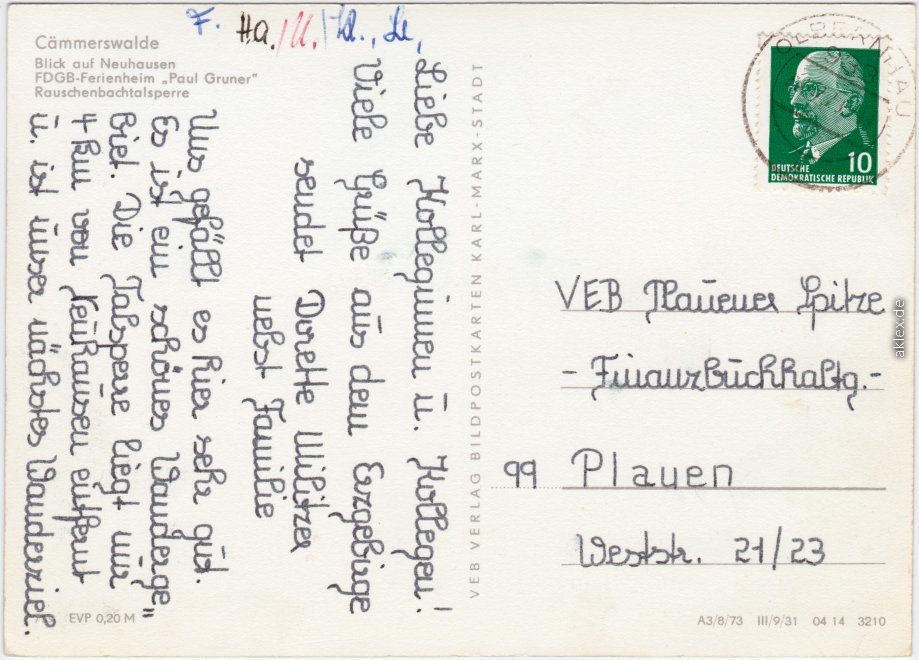 F. Ha./U./Kl., Le,
Cämmerswalde
Blick auf Neuhausen
FDGB-Ferienheim „Paul Gruner“
Rauschenbachtalsperre
Liebe Kolleginnen u. Kollegen!
Viele Grüße aus dem Erzgebirge
sendet Dorette Militzer
nebst Familie
Uns gefällt es hier sehr gut.
Es ist ein schönes Wanderge„
biet. Die Talsperre liegt nur
4 km von Neuhausen entfernt
u. ist unser nächstes Wanderziel.
EVP 0,20 M
VEB VERLAG BILDPOSTKARTEN KARL-MARX-STADT
OLBERNHAU
933
10
DEUTSCHE
DEMOKRATISCHE REPUBLIK
VEB Plauener Spitze
- Finanzbuchhaltg.-
99 Plauen
Weststr. 21/23
A3/8/73 III/9/31 04 14 3210
aklex.de